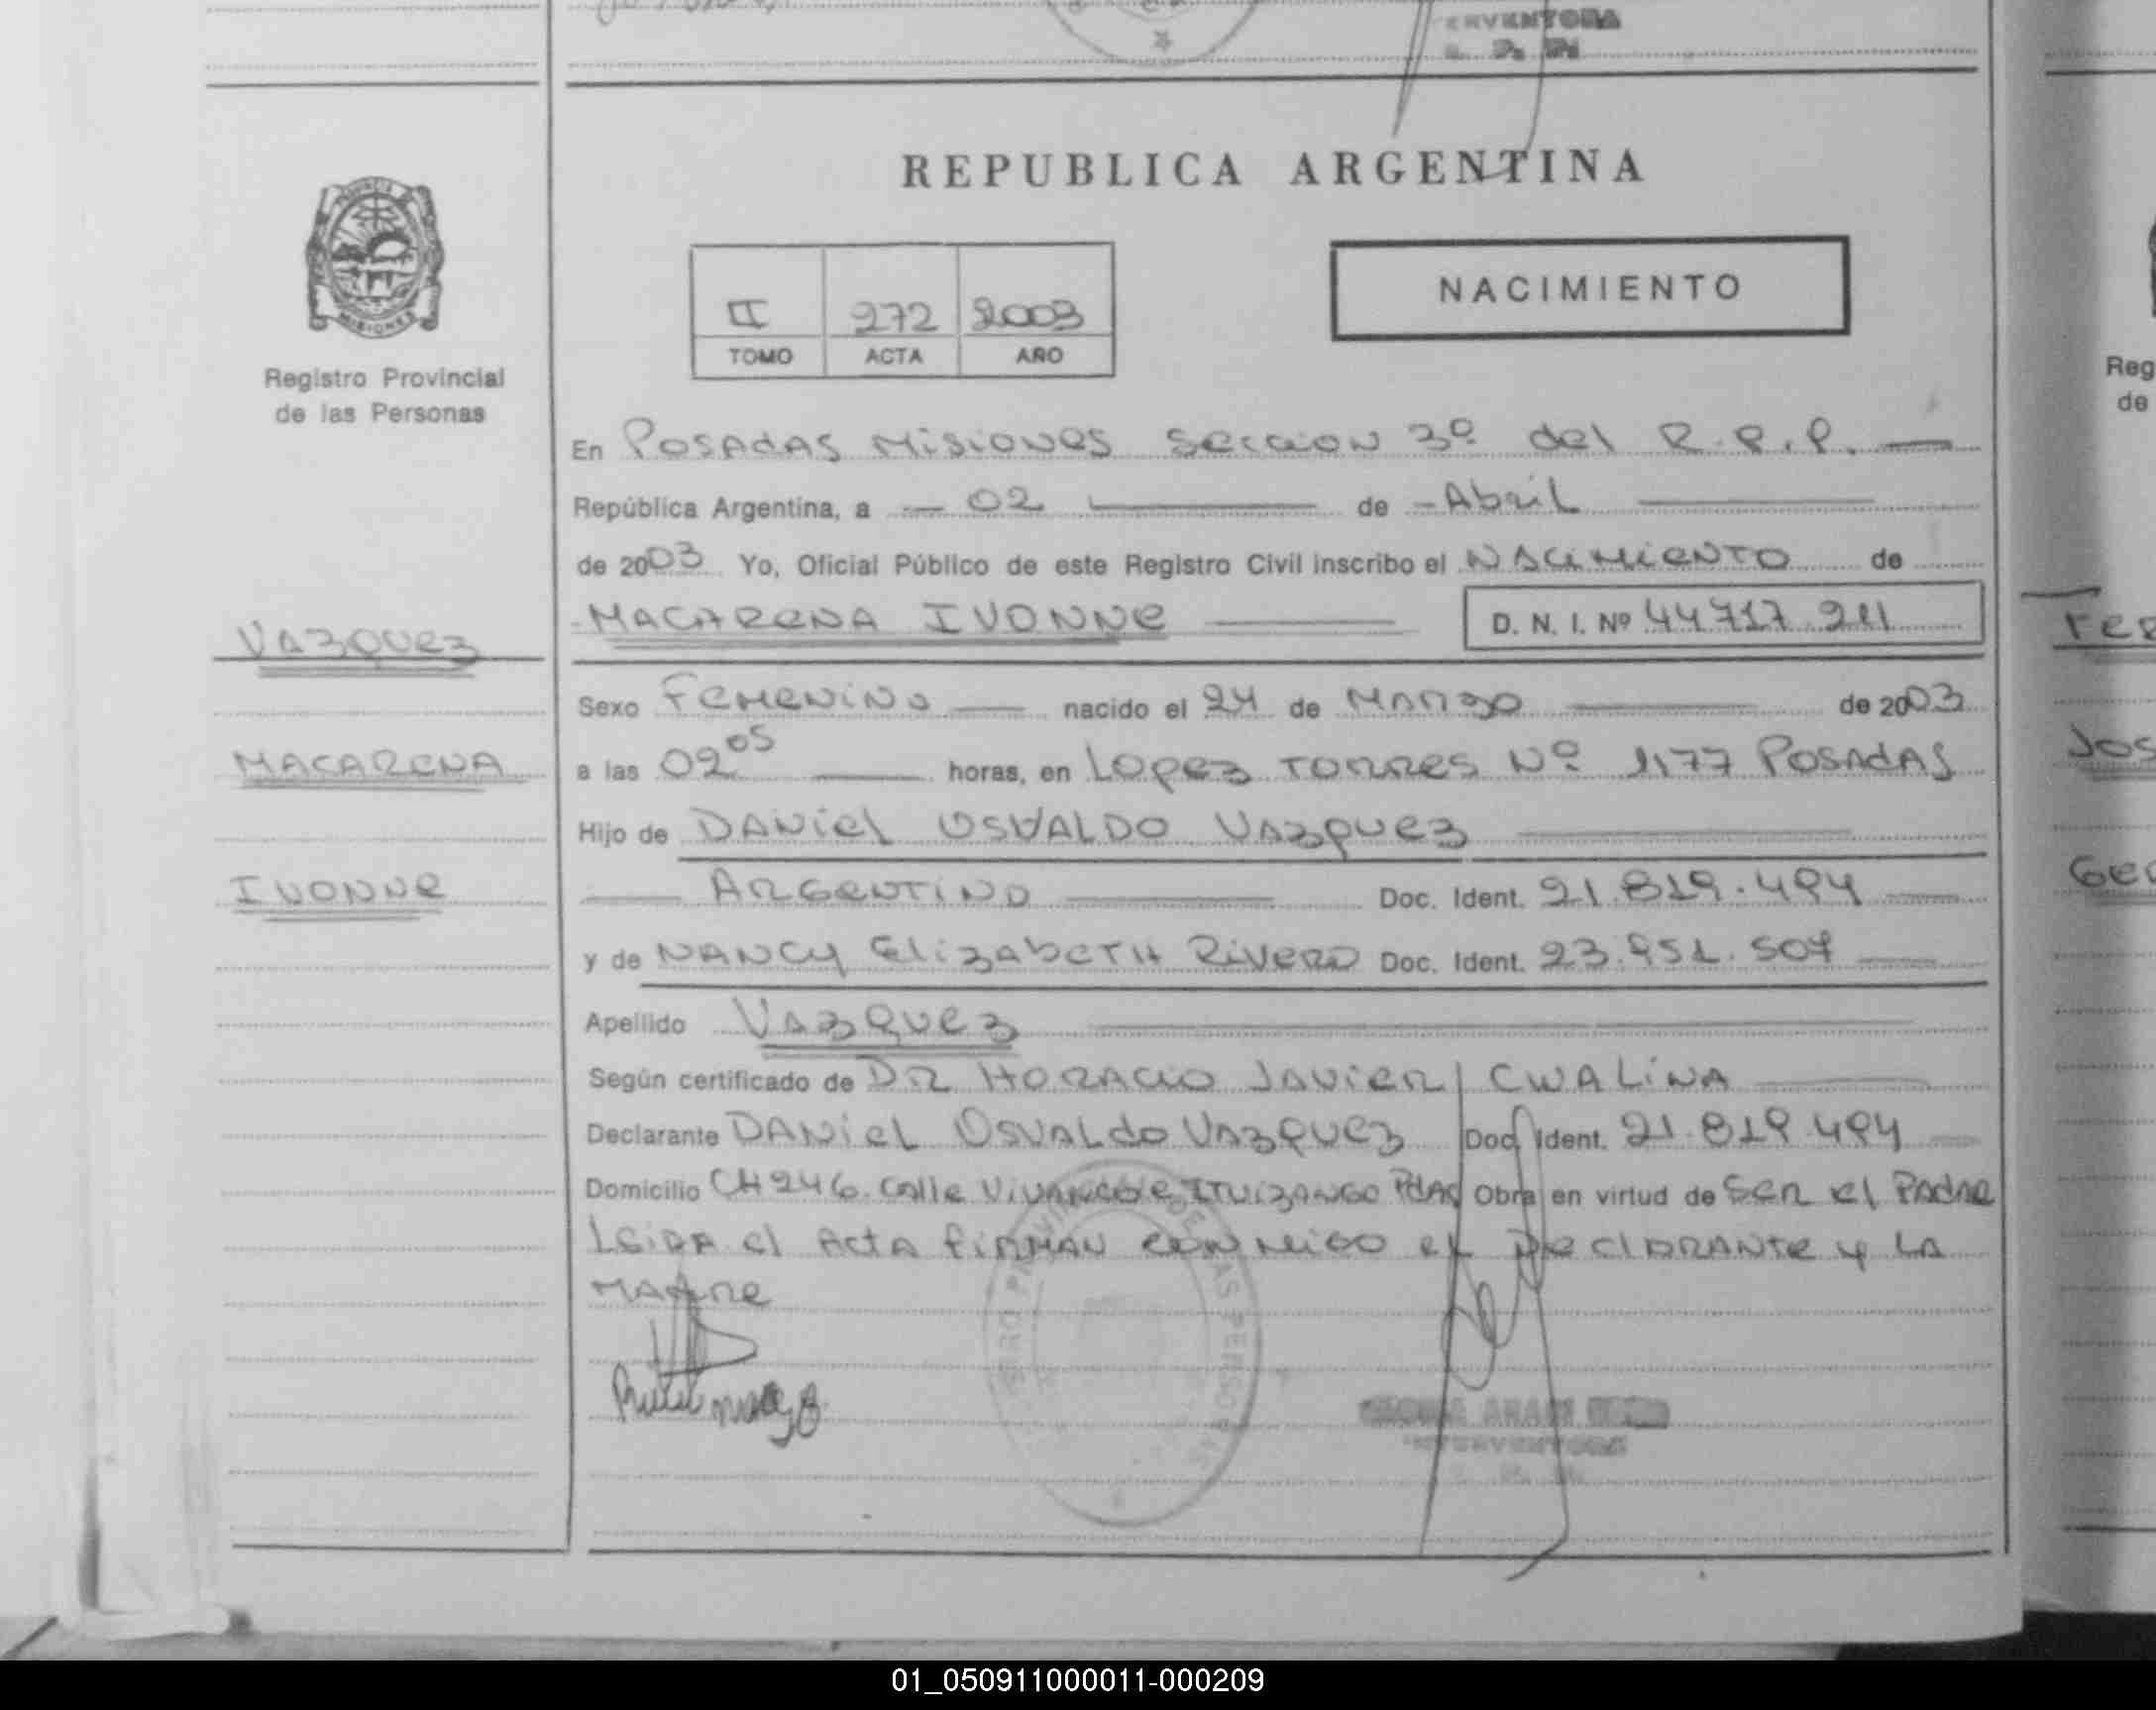 ERVENTORA
REPUBLICA ARGENTINA
MISIONES
Registro Provincial
de las Personas
II 272 2003
TOMO ACTA AÑO
NACIMIENTO
En POSADAS MISIONES SECCION 3º del R.P.P.
República Argentina, a 02 de Abril
de 2003 Yo, Oficial Público de este Registro Civil inscribo el NACIMIENTO de
MACARENA IVONNE D. N. I. Nº 44717.211
VAZQUEZ
Sexo FEMENINO nacido el 24 de MARZO de 2003
MACARENA
a las 02 05 horas, en LOPEZ TORRES Nº 1177 POSADAS
Hijo de DANIEL OSVALDO VAZQUEZ
IVONNE
ARGENTINO Doc. Ident. 21.819.494
y de NANCY ELIZABETH RIVERO Doc. Ident. 23.951.507
Apellido VAZQUEZ
Según certificado de DR HORACIO JAVIER CWALINA
Declarante DANIEL OSVALDO VAZQUEZ Doc. Ident. 21.819.494
Domicilio CH 246 calle VIVANCO e ITUIZANGO Pdas Obra en virtud de SER el PADRE
LEIDA el ACTA FIRMAN CONMIGO el DECLARANTE y LA
MADRE
Reg
de
FER
JOS
GEO
01_050911000011-000209